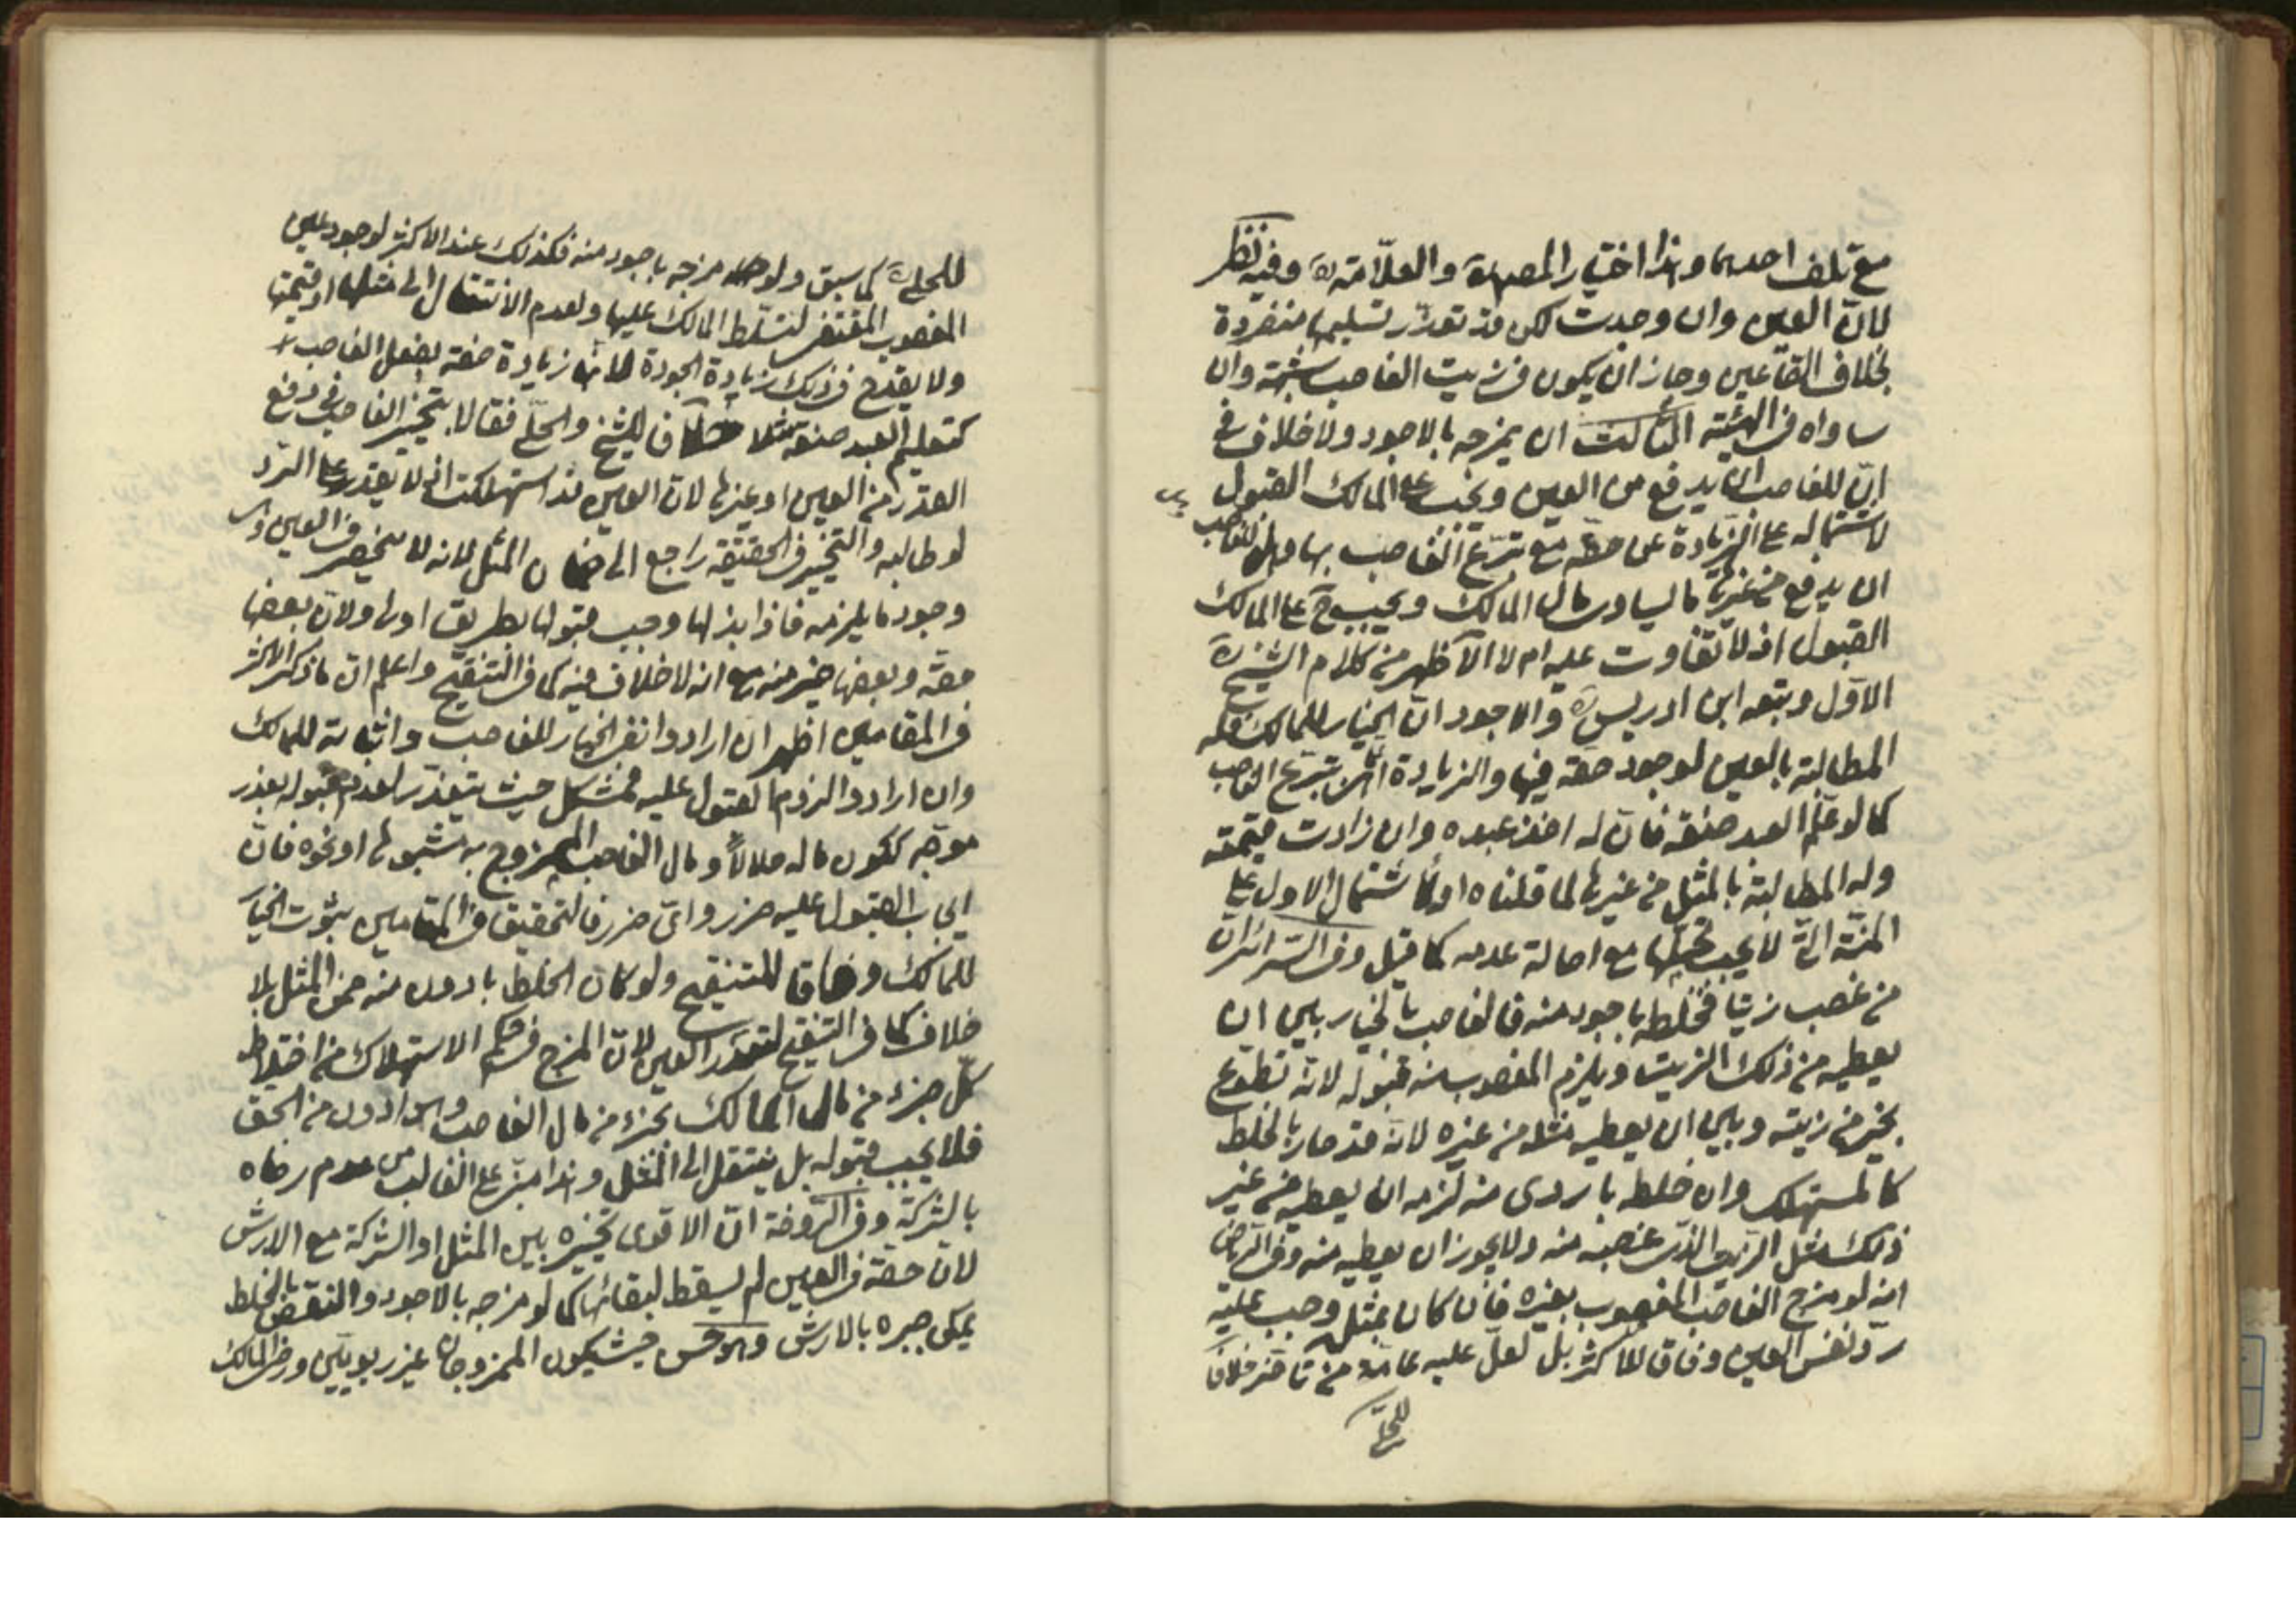 مع تلف احدهما وهذا اختيار المصره والعلّامة ره وفيه نظر
لانّ العين وان وجدت لكن قد تعذّر تسليمها منفردة
بخلاف القاعين وجاز ان يكون في زيت الغاصب شبهة وان
ساواه في القيمة الثالث ان يمزجه بالاجود ولا خلاف في
انّ للغاصب ان يدفع من العين ويجب على المالك القبول
لاشتماله على الزيادة عن حقّه مع تبرّع الغاصب بها وهل للغاصب
ان يدفع من غيرها ما يساوى مال المالك ويجب ح على المالك
القبول اذ لا تفاوت عليه ام لا الاظهر من كلام الشيخ ره
الاوّل وتبعه ابن ادريس ره والاجود انّ الخيار للمالك فله
المطالبة بالعين لوجود حقّه فيها والزيادة اثر تبرّع الغاصب
كما لو علّم العبد صنعة فانّ له اخذ عبده وان زادت قيمته
وله المطالبة بالمثل من غيرها لما قلناه اولا شتمال الاول على
المنّة التي لا يجب تحمّلها مع اصالة عدمه كما قيل وفي السرائر ان
من غصب زيتا فخلطه باجود منه فالغاصب بالخيار بين ان
يعطيه من ذلك الزيت ويلزم المغصوب منه قبوله لانّه تطوّع
بخير من زيته وبين ان يعطيه مثله من غيره لانّه قد صار بالخلط
كالمستهلك وان خلطه باردى منه لزمه ان يعطيه من غير
ذلك مثل الزيت الذي غصبه منه ولا يجوز ان يعطيه منه وفي الرياض
انه لو مزج الغاصب المغصوب بغيره فان كان بمثله وجب عليه
ردّ نفس العين وفاقا للاكثر بل لعلّ عليه عامّة من تاخّر خلافا
للحلّي
للحلي ره كما سبق ولو مزجه باجود منه فكذلك عند الاكثر لوجود عين
المغصوب المقتضي لتسلّط المالك عليها ولعدم الانتقال الى مثلها او قيمتها
ولا يقدح في ذلك زيادة الجودة لانّها زيادة صفة بفعل الغاصب
كتعليم العبد صنعة مثلا خلافا للشيخ والحلّي فقالا بتخيّر الغاصب في دفع
القدر من العين او غيرها لانّ العين قد استهلكت اذ لا يقدر على الرّد
لو طالبه والتخيير في الحقيقة راجع الى ضمان المثل لانه لا ينحصر في العين
وجود ما يلزمه فاذا بذلها وجب قبولها بطريق اولى ولانّ بعضها
حقّه وبعضها خير منه مع انه لا خلاف فيه كما في التنقيح واعلم انّ ما ذكره الاكثر
في المقامين اظهر ان ارادوا نفي الخيار للغاصب واثباته للمالك
وان ارادوا الزوم القبول عليه فمشكل حيث يتعذّر لعدم قبوله بعذر
موجّه ككون ماله حلالاً ومال الغاصب الممزوج به مشبوها او نحوه فانّ
ايجاب القبول عليه ضرر واىّ ضرر فالتحقيق في المقامين ثبوت الخيار
للمالك وفاقا للتنقيح ولو كان الخلط بادون منه ضمن المثل بلا
خلاف كما في التنقيح لتعذّر العين لانّ المزج في حكم الاستهلاك من اختلاط
كلّ جزء من مال المالك بجزء من مال الغاصب وهو ادون من الحق
فلا يجب قبوله بل ينتقل الى المثل وهذا مبنىّ على الغالب من عدم رضاه
بالشركة وفي الروضة انّ الاقوى تخييره بين المثل او الشركة مع الارش
لانّ حقّه في العين لم يسقط لبقائها كما لو مزجه بالاجود والنقص بالخلط
يمكن جبره بالارش وهو حسن حيث يكون الممزوجان غير ربويّين ورضى المالك